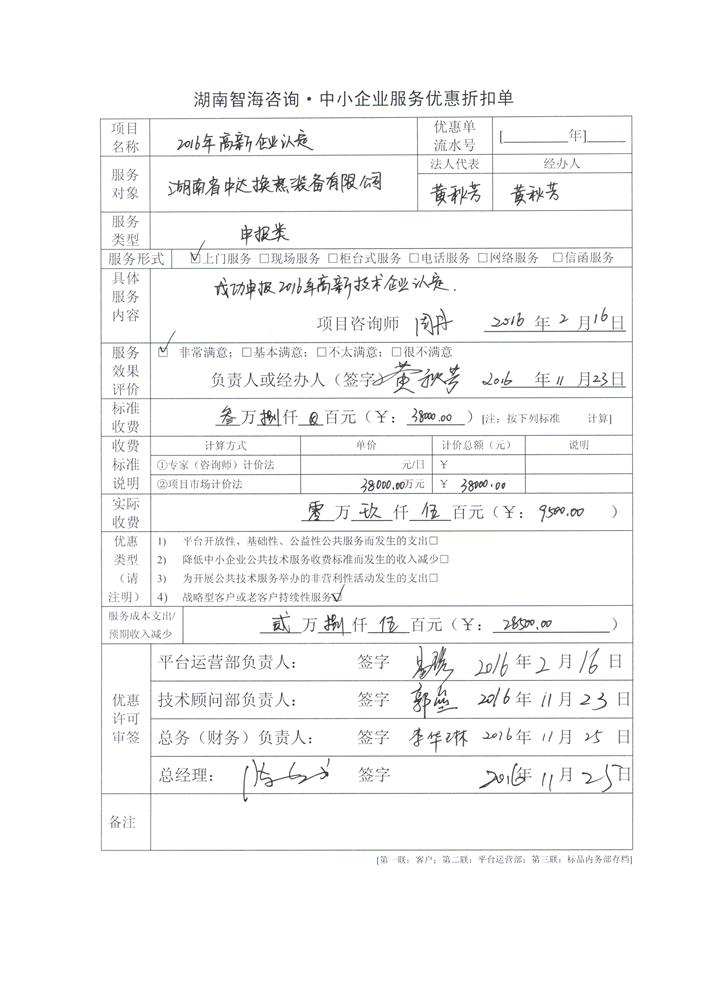 湖南智海咨询·中小企业服务优惠折扣单
项目名称 2016年高新企业认定 优惠单流水号 [ 年]
服务对象 湖南省中达换热装备有限公司 法人代表 经办人
黄秋芳 黄秋芳
服务类型 申报类
服务形式 ☑上门服务 □现场服务 □柜台式服务 □电话服务 □网络服务 □信函服务
具体服务内容 成功申报2016年高新技术企业认定.
项目咨询师 周丹 2016 年 2 月 16 日
服务效果评价 ☑ 非常满意; □基本满意; □不太满意; □很不满意
负责人或经办人(签字) 黄秋芳 2016 年 11 月 23 日
标准收费 叁 万 捌 仟 0 百元(¥: 38000.00 ) [注: 按下列标准 计算]
收费标准说明 计算方式 单价 计价总额(元) 说明
①专家(咨询师)计价法 元/日 ¥
②项目市场计价法 38000.00 万元 ¥ 38000.00
实际收费 零 万 玖 仟 伍 百元(¥: 9500.00 )
优惠类型(请注明) 1) 平台开放性、基础性、公益性公共服务而发生的支出□
2) 降低中小企业公共技术服务收费标准而发生的收入减少□
3) 为开展公共技术服务举办的非营利性活动发生的支出□
4) 战略型客户或老客户持续性服务☑
服务成本支出/预期收入减少 贰 万 捌 仟 伍 百元(¥: 28500.00 )
优惠许可审签 平台运营部负责人: 签字 2016 年 2 月 16 日
技术顾问部负责人: 签字 2016 年 11 月 23 日
总务(财务)负责人: 签字 李华琳 2016 年 11 月 25 日
总经理: 签字 2016 年 11 月 25 日
备注
[第一联: 客户; 第二联: 平台运营部; 第三联: 标品内务部存档]